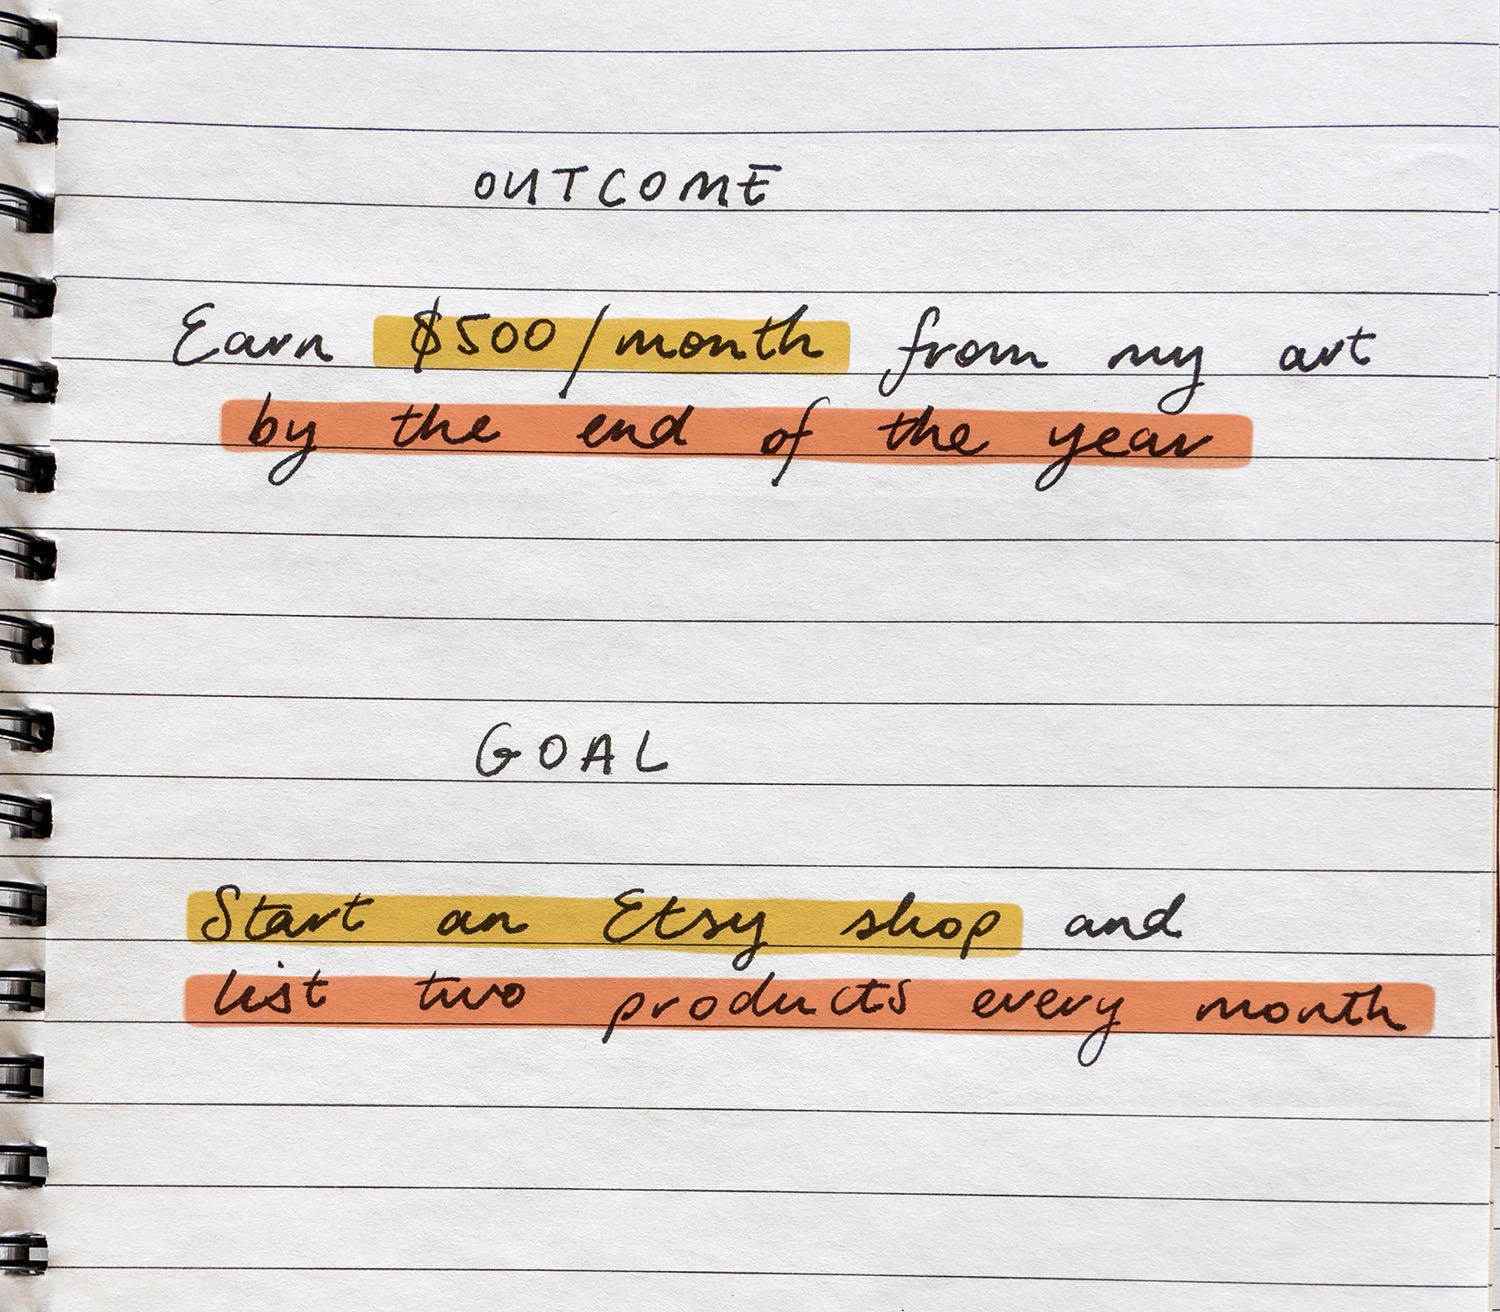 OUTCOME
Earn $500/month from my art
by the end of the year
GOAL
Start an Etsy shop and
list two products every month